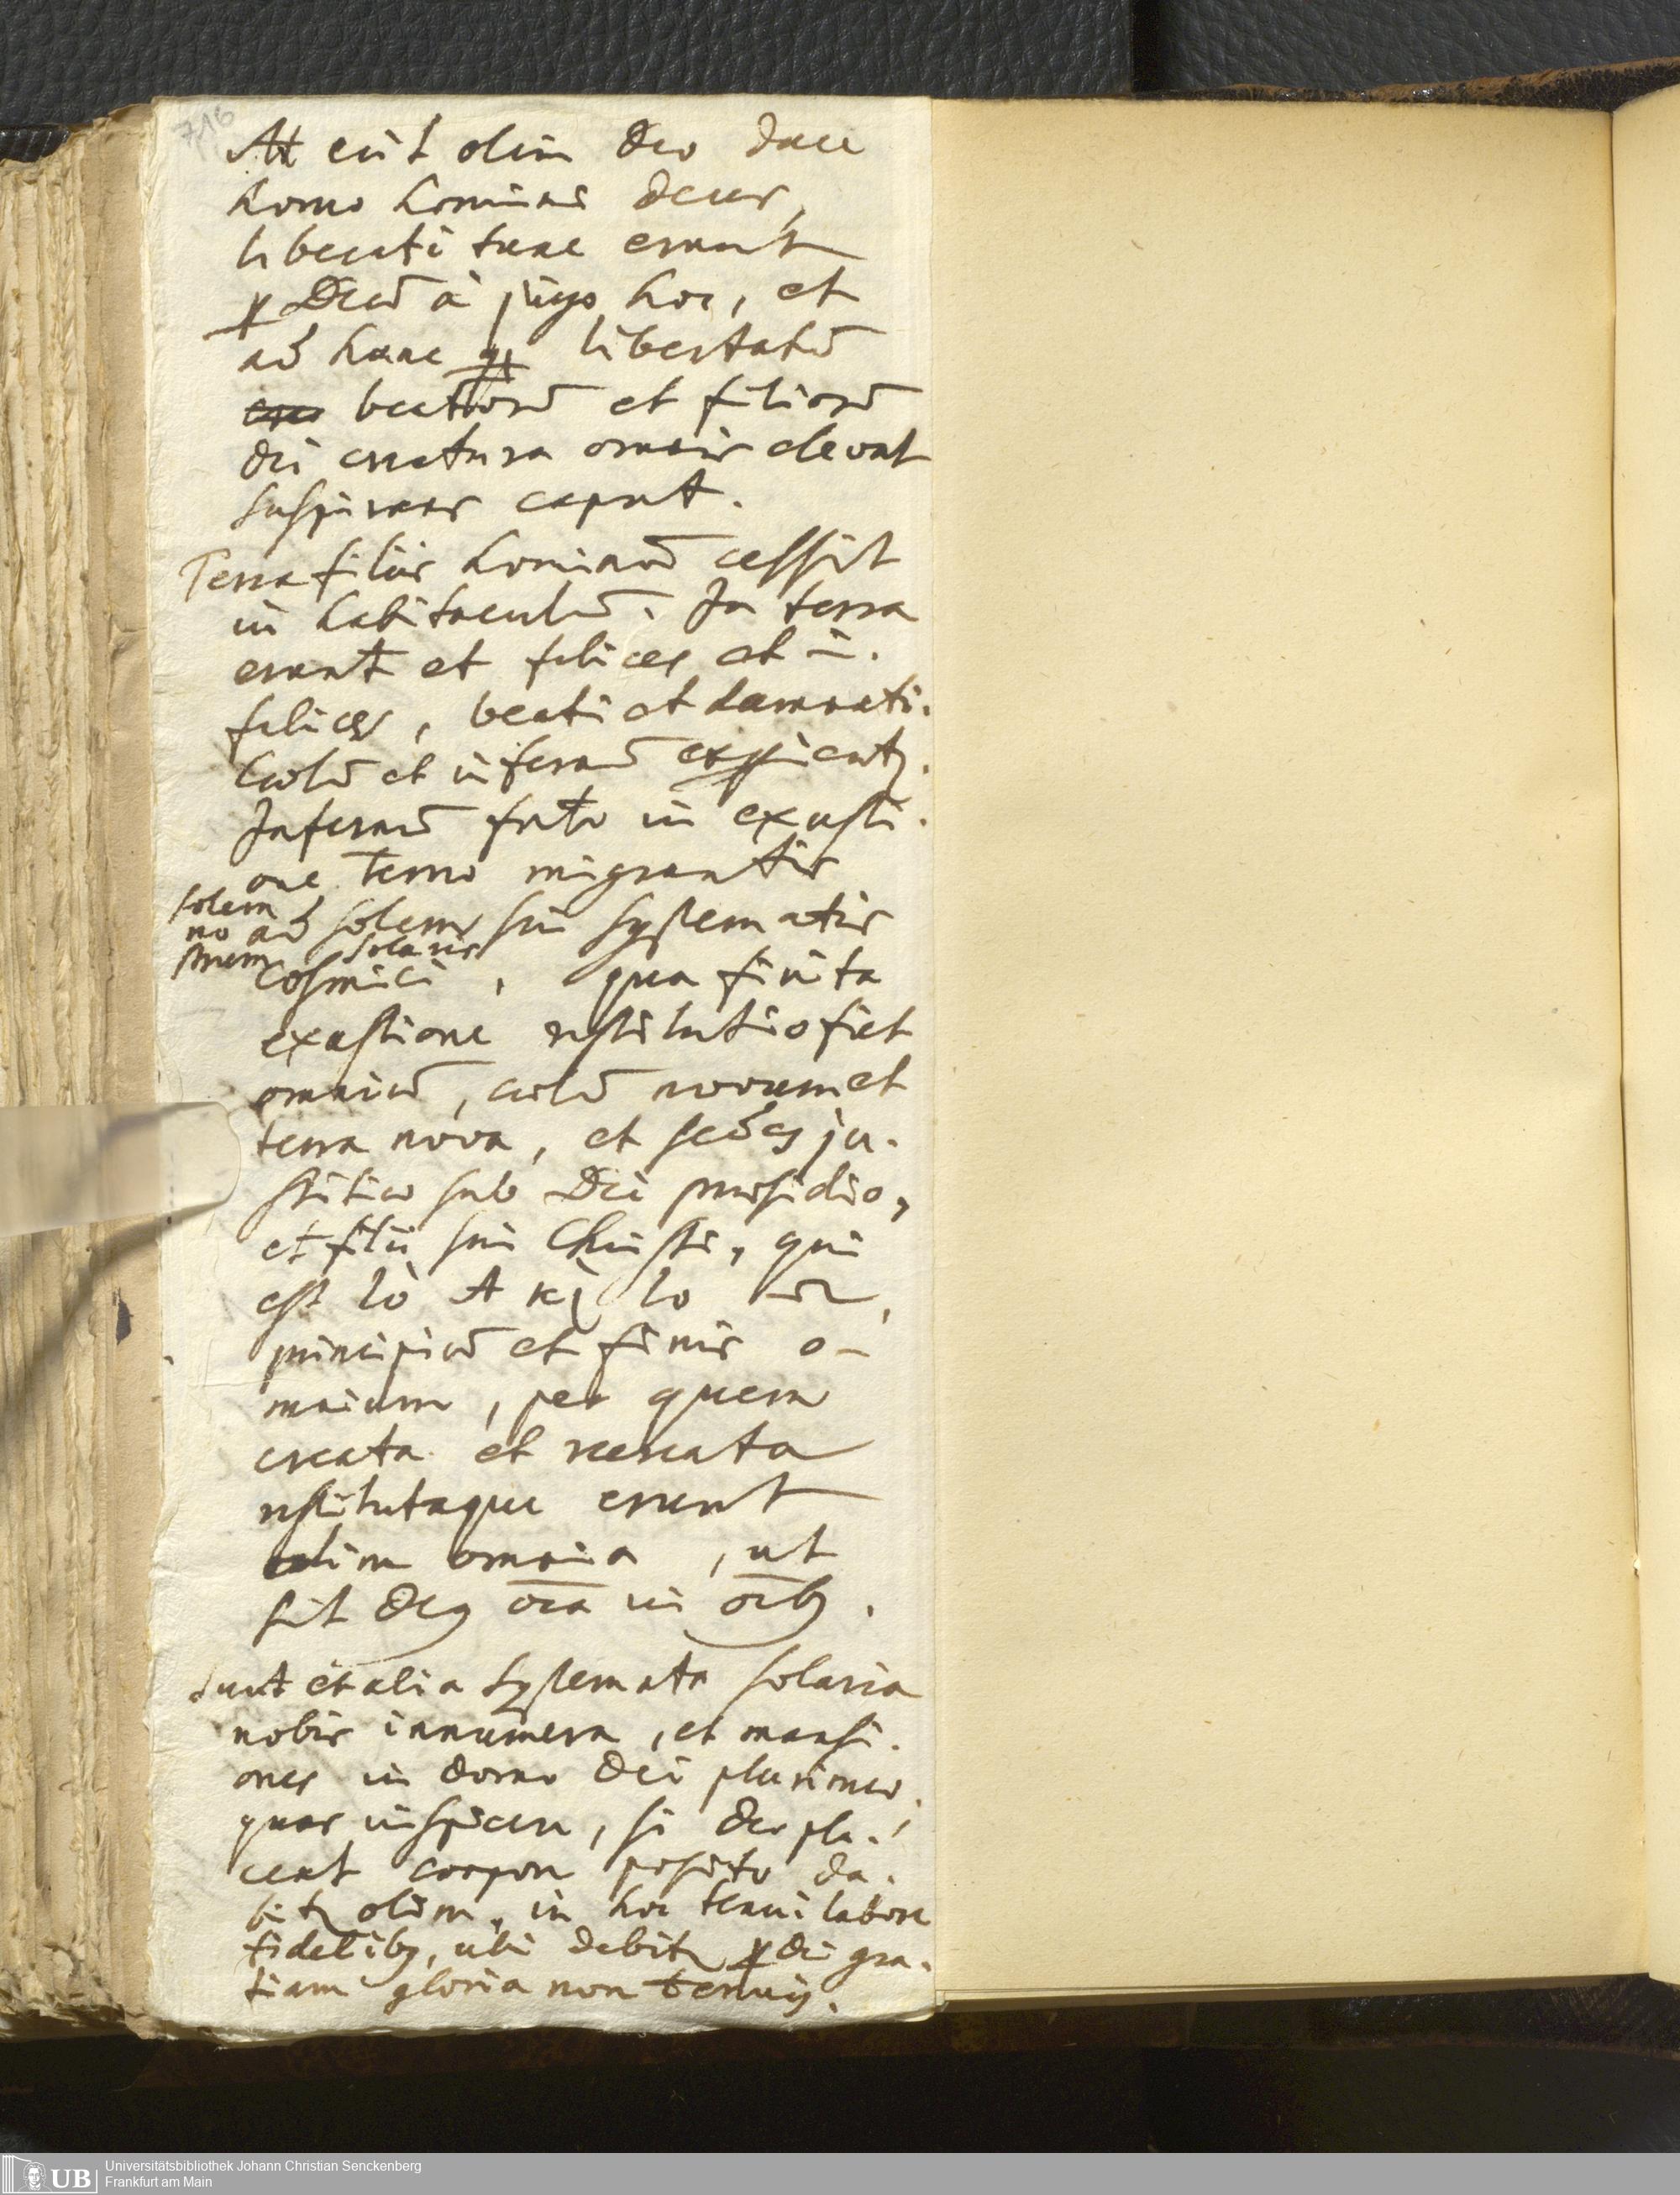 716
At erit olim Deo duce
homo homini decus,
liberati tunc erunt
p Deū à jugo hoc, et
ad hanc libertatē
beatorū et filiorū
dei creatura omnis elevat
suspirans caput.
Terra filiis hominū cessit
in habitaculū. In terra
erunt et felices et in-
felices, beati et damnati.
Coelū et infernū
Infernū in exusti-
one Terrae migrantis
ad solem sui systematis
solem
no
strum
solaris
cosmici, qua finita
exustione restitutio fiet
omniū, coelū novum et
terra nova, et sedes ju-
stitiae sub Dei praesidio,
et filii sui Christi, qui
est tò A κỳ to ω,
principiū et finis o-
mnium, per quem
creata et recreata
restitutaque erunt
olim omnia, ut
sit Deus oīa in oībus.
Sunt et alia systemata solaria
nobis innumera, et mansi-
ones in domo Dei plurimae,
quas inspicere, si Deo pla-
ceat corpore posito da-
bitur olim, in hoc tenui labore
fidelibus, ubi debitur p Dei gra-
tiam gloria non tenuis.
Universitätsbibliothek Johann Christian Senckenberg
Frankfurt am Main
UB